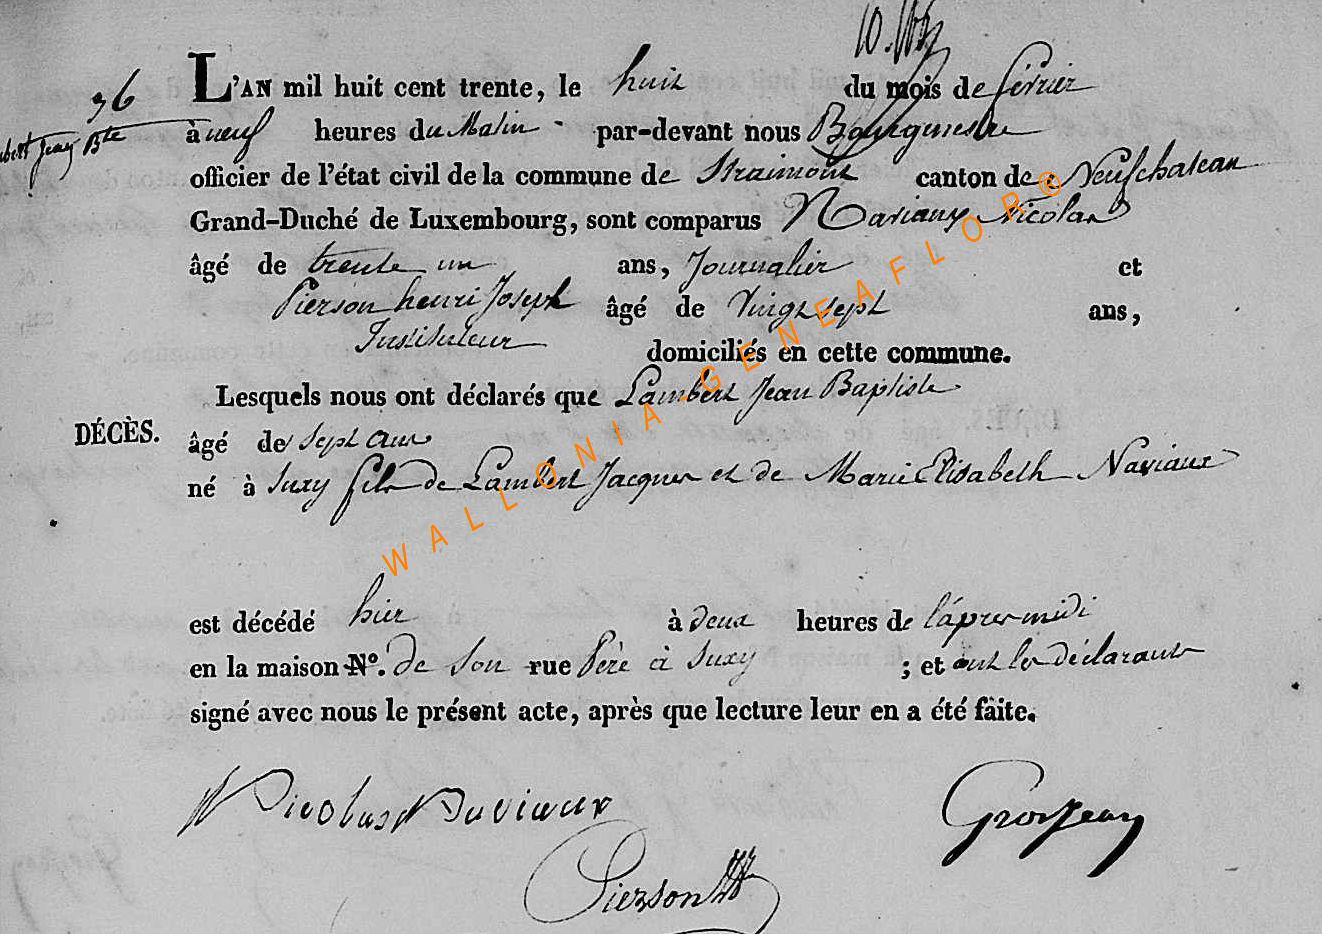 36
Jean Bte
L'AN mil huit cent trente, le huit du mois de fevrier
à neuf heures du Matin par-devant nous Bourgmestre
officier de l'état civil de la commune de Straimont canton de Neufchateau
Grand-Duché de Luxembourg, sont comparus Naviaux Nicolas
âgé de trente un ans, Journalier et
Pierson henri Joseph âgé de Vingt sept ans,
Instituteur domiciliés en cette commune.
Lesquels nous ont déclarés que Lambert Jean Baptiste
DÉCÈS.
âgé de sept ans
né à Suxy fils de Lambert Jacques et de Marie Elisabeth Naviaux
est décédé hier à deux heures de l'ápres midi
en la maison N°. de son rue Pére à Suxy ; et ont les déclarants
signé avec nous le présent acte, après que lecture leur en a été faite.
N Nicolas Naviaux
Grosjean
Pierson
WALLONIA-GENEAFLOR®